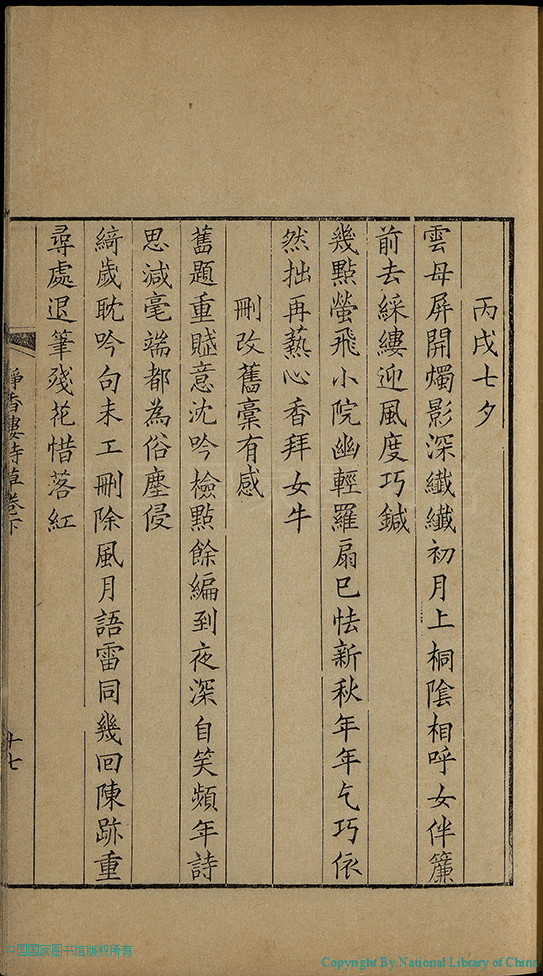 丙戌七夕
雲母屏開燭影深纖纖初月上桐陰相呼女伴簾
前去綵縷迎風度巧鍼
幾點螢飛小院幽輕羅扇已怯新秋年年乞巧依
然拙再爇心香拜女牛
刪改舊稾有感
舊題重賦意沈吟檢點餘編到夜深自笑頻年詩
思減毫端都為俗塵侵
綺歲耽吟句未工刪除風月語雷同幾回陳跡重
尋處退筆殘花惜落紅
靜香樓詩草卷下
十七
中国国家图书馆版权所有
Copyright By National Library of China